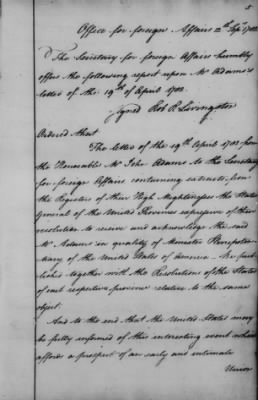 5
Office for foreign Affairs 12th Sepr. 1782
The Secretary for foreign Affairs humbly
offers the following report upon Mr Adams's
letter of the 19th of April 1782.
Signed Robt R. Livingston
Ordered that
The letter of the 19th April 1782 from
the Honourable Mr John Adams to the Secretary
for foreign Affairs containing extracts from
the Registers of their High Mightinesses the States
General of the United Provinces expressive of their
resolution to receive and acknowledge the said
Mr Adams in quality of Minister Plenipoten-
tiary of the United States of America be pub-
lished together with the Resolutions of the States
of each respective province relative to the same
object.
And to the end that the United States may
be fully informed of this interesting event which
affords a prospect of an early and intimate
Union